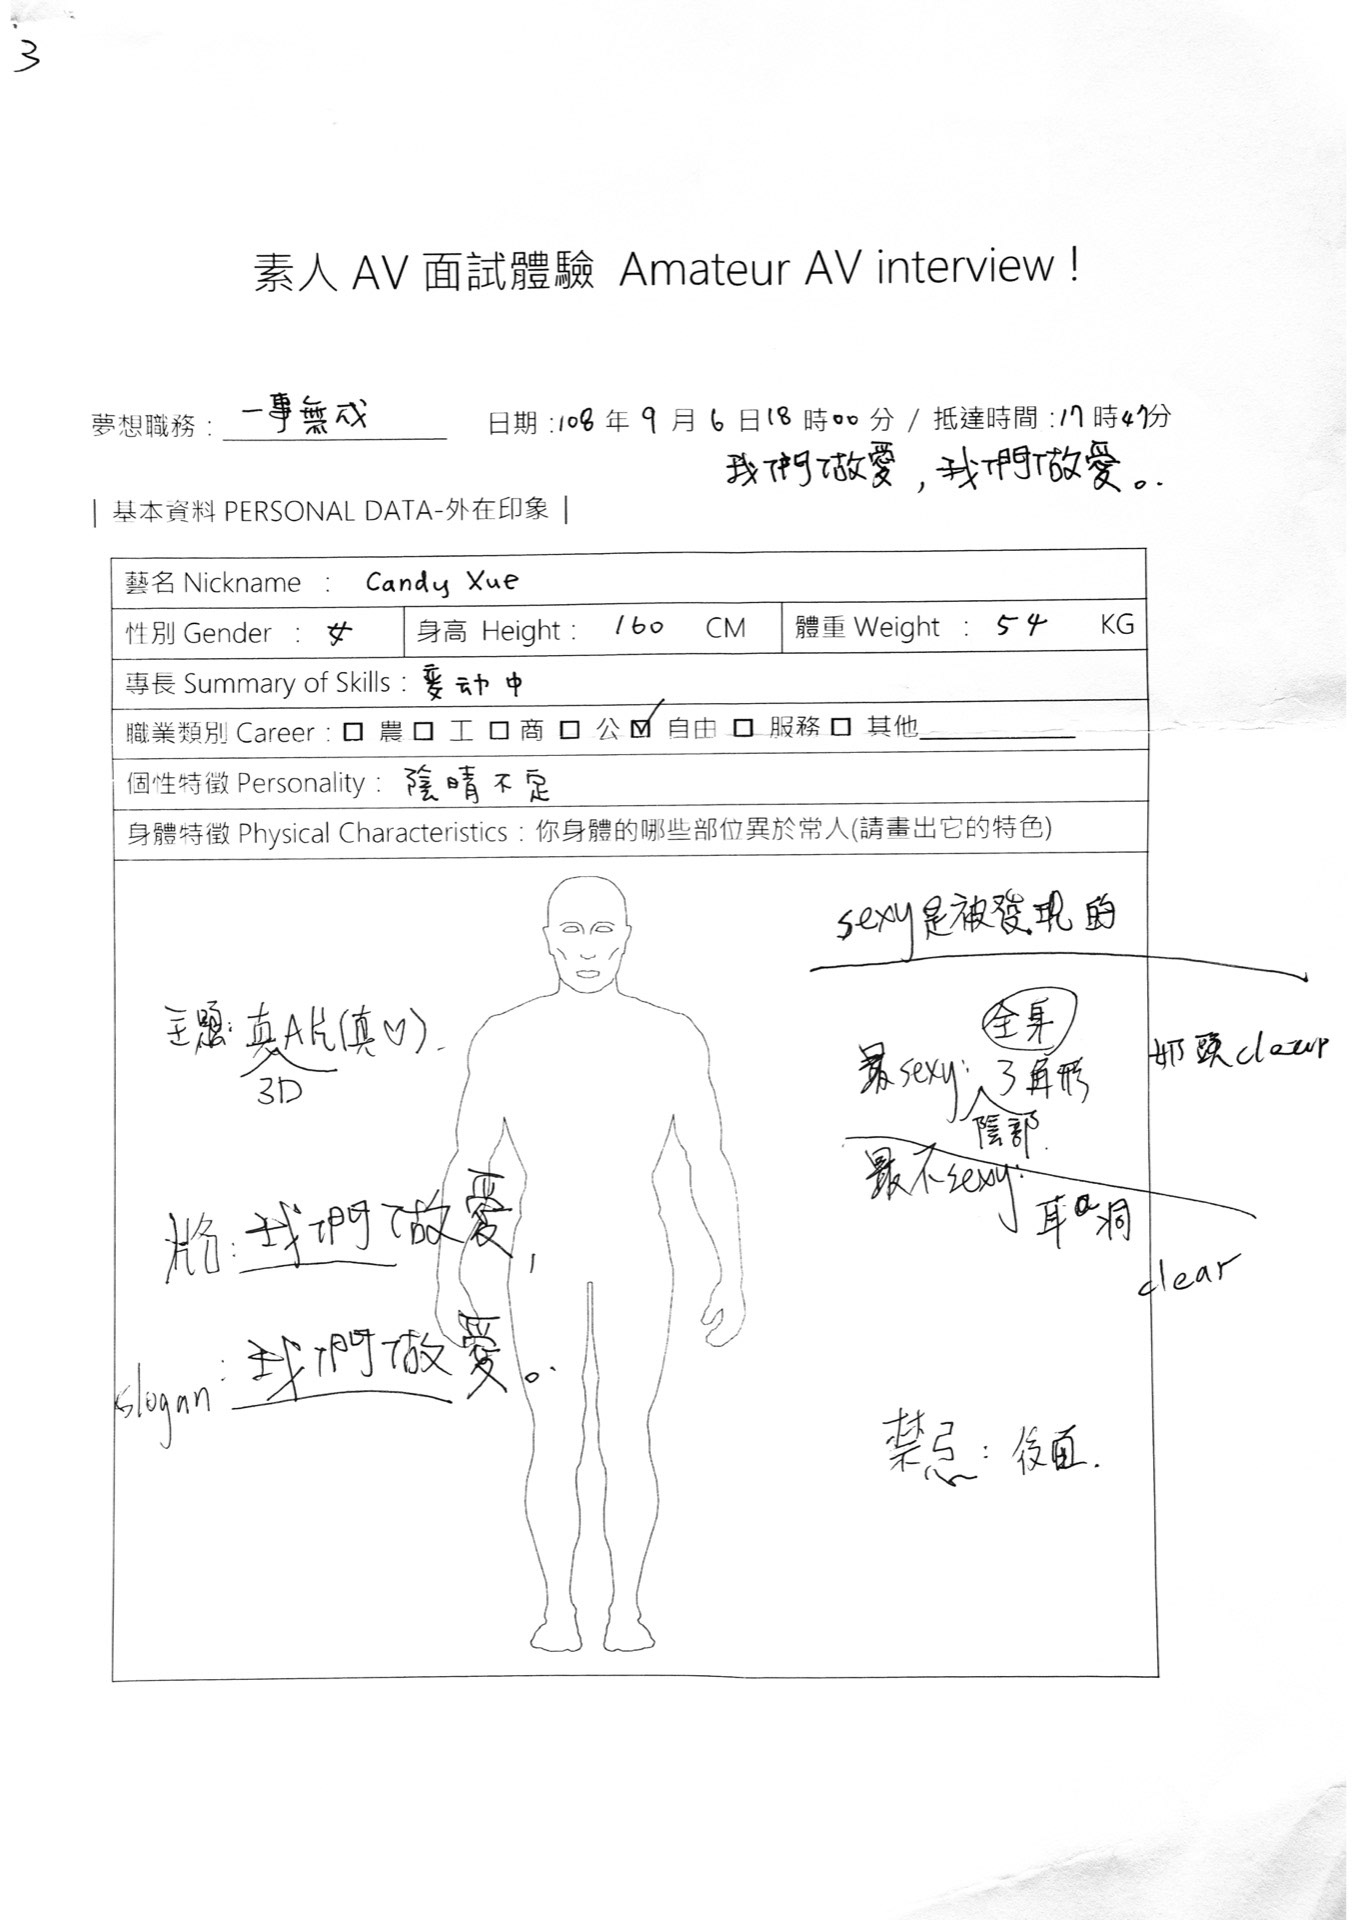 3
素人 AV 面試體驗 Amateur AV interview !
夢想職務 : 一事無成 日期 :108 年 9 月 6 日18 時00 分 / 抵達時間 :17 時47分
我們做愛，我們做愛。
| 基本資料 PERSONAL DATA-外在印象 |
藝名 Nickname : Candy Xue
性別 Gender : 女 身高 Height : 160 CM 體重 Weight : 54 KG
專長 Summary of Skills : 變动中
職業類別 Career : □ 農 □ 工 □ 商 □ 公 ☑ 自由 □ 服務 □ 其他
個性特徵 Personality : 陰晴不定
身體特徵 Physical Characteristics : 你身體的哪些部位異於常人(請畫出它的特色)
sexy是被發現的
主題: 真A片(真♡).
3D
全身
最sexy: 3角形
陰部.
奶頭
最不sexy:
耳洞
clear
片名: 我們做愛,
slogan: 我們做愛。
禁忌: 後面.